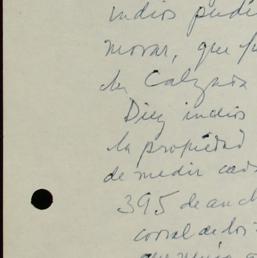 indios pudi
morar, que fu
la Calzada
Diez indios
la propiedad
de medir cad
395 de anch
corral de los